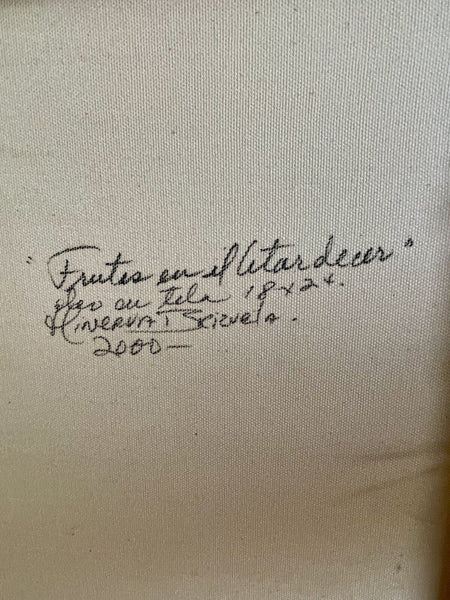 "Frutas en el Atardecer"
oleo en tela 18 x 24.
Minerva
2000-